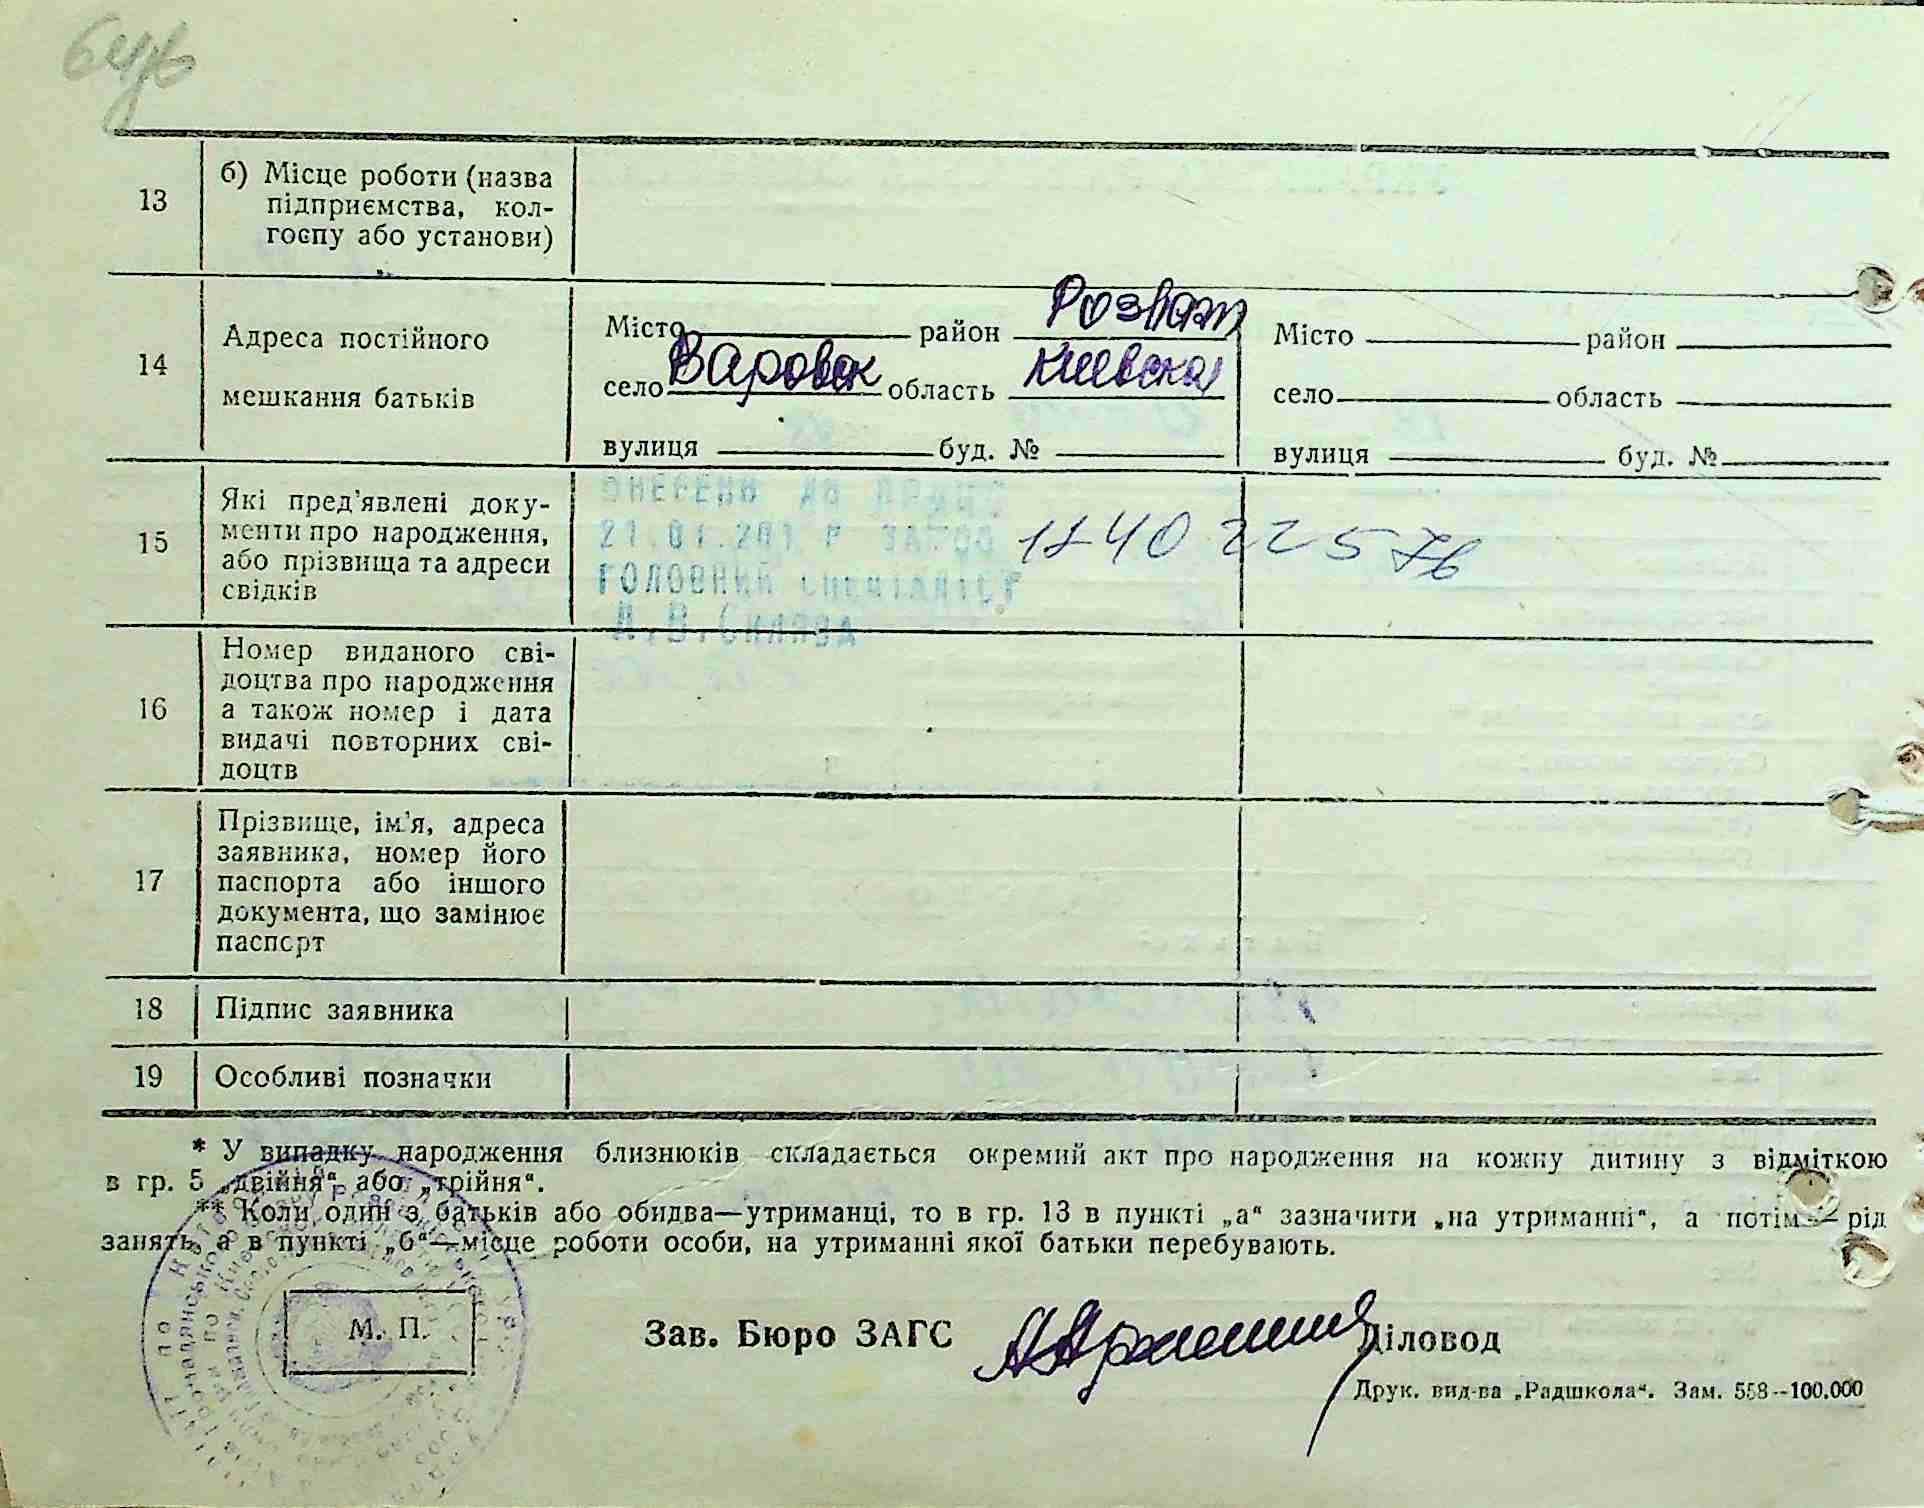 13
б) Місце роботи (назва
підприємства, кол-
госпу або установи)
14
Адреса постійного
мешкання батьків
Місто район Розваж
село Варовск область Киевска
вулиця буд. №
Місто район
село область
вулиця буд. №
15
Які пред’явлені доку-
менти про народження,
або прізвища та адреси
свідків
ВНЕСЕНО ДО
21.01.201 Р
ГОЛОВНИЙ спеціаліст
16
Номер виданого сві-
доцтва про народження
а також номер і дата
видачі повторних сві-
доцтв
17
Прізвище, ім’я, адреса
заявника, номер його
паспорта або іншого
документа, що замінює
паспорт
18
Підпис заявника
19
Особливі позначки
* У випадку народження близнюків складається окремий акт про народження на кожну дитину з відміткою
в гр. 5 „двійня“ або „трійня“.
** Коли один з батьків або обидва—утриманці, то в гр. 13 в пункті „а“ зазначити „на утриманні“, а потім—рід
занять, а в пункті „б“—місце роботи особи, на утриманні якої батьки перебувають.
М. П.
Зав. Бюро ЗАГС
Діловод
Друк. вид-ва „Радшкола“. Зам. 558—100.000